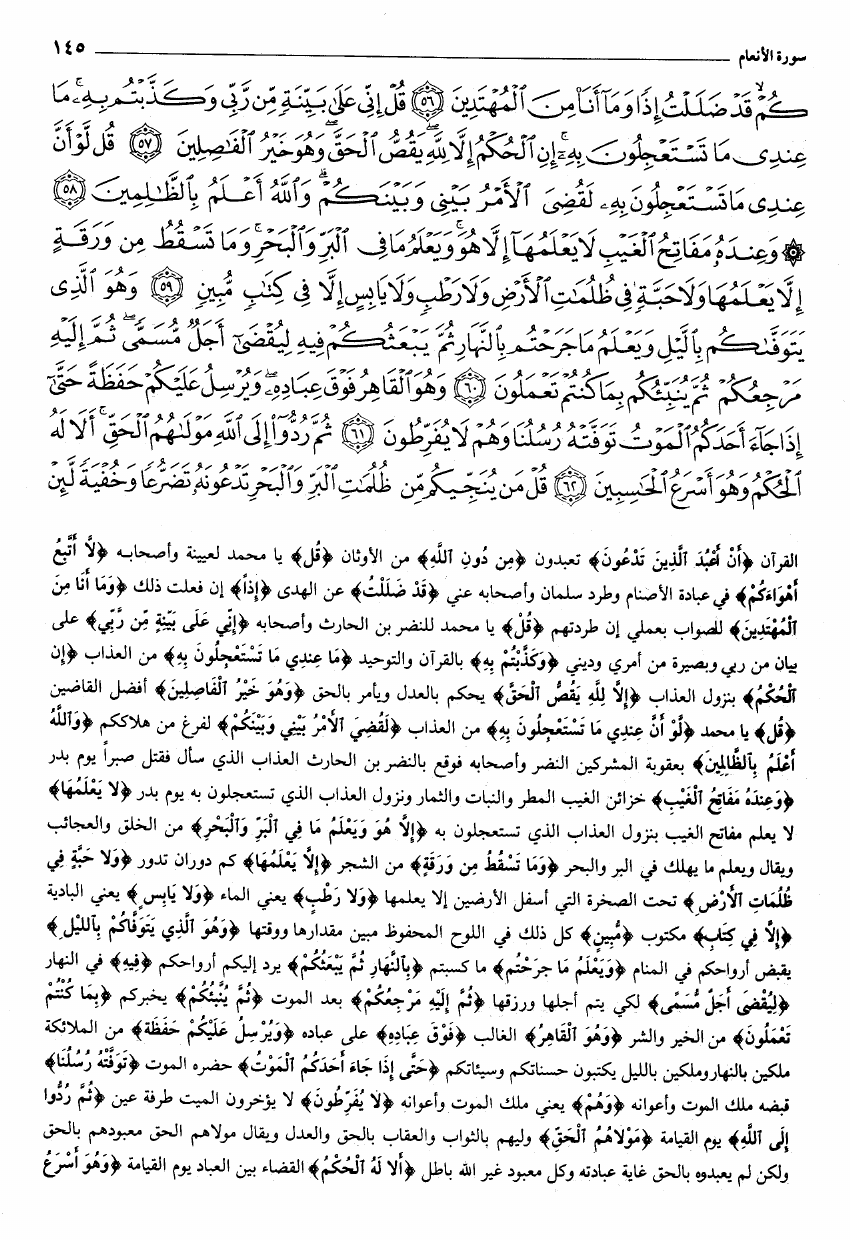 سورة الأنعام ١٤٥
كُمْ قَدْ ضَلَلْتُ إِذًا وَمَآ أَنَا۠ مِنَ ٱلْمُهْتَدِينَ ٥٦ قُلْ إِنِّى عَلَىٰ بَيِّنَةٍ مِّن رَّبِّى وَكَذَّبْتُم بِهِۦ ۚ مَا
عِندِى مَا تَسْتَعْجِلُونَ بِهِۦٓ ۚ إِنِ ٱلْحُكْمُ إِلَّا لِلَّهِ ۖ يَقُصُّ ٱلْحَقَّ ۖ وَهُوَ خَيْرُ ٱلْفَـٰصِلِينَ ٥٧ قُل لَّوْ أَنَّ
عِندِى مَا تَسْتَعْجِلُونَ بِهِۦ لَقُضِىَ ٱلْأَمْرُ بَيْنِى وَبَيْنَكُمْ ۗ وَٱللَّهُ أَعْلَمُ بِٱلظَّـٰلِمِينَ ٥٨
۞ وَعِندَهُۥ مَفَاتِحُ ٱلْغَيْبِ لَا يَعْلَمُهَآ إِلَّا هُوَ ۚ وَيَعْلَمُ مَا فِى ٱلْبَرِّ وَٱلْبَحْرِ ۚ وَمَا تَسْقُطُ مِن وَرَقَةٍ
إِلَّا يَعْلَمُهَا وَلَا حَبَّةٍ فِى ظُلُمَـٰتِ ٱلْأَرْضِ وَلَا رَطْبٍ وَلَا يَابِسٍ إِلَّا فِى كِتَـٰبٍ مُّبِينٍ ٥٩ وَهُوَ ٱلَّذِى
يَتَوَفَّىٰكُم بِٱلَّيْلِ وَيَعْلَمُ مَا جَرَحْتُم بِٱلنَّهَارِ ثُمَّ يَبْعَثُكُمْ فِيهِ لِيُقْضَىٰٓ أَجَلٌ مُّسَمًّى ۖ ثُمَّ إِلَيْهِ
مَرْجِعُكُمْ ثُمَّ يُنَبِّئُكُم بِمَا كُنتُمْ تَعْمَلُونَ ٦٠ وَهُوَ ٱلْقَاهِرُ فَوْقَ عِبَادِهِۦ ۖ وَيُرْسِلُ عَلَيْكُمْ حَفَظَةً حَتَّىٰٓ
إِذَا جَآءَ أَحَدَكُمُ ٱلْمَوْتُ تَوَفَّتْهُ رُسُلُنَا وَهُمْ لَا يُفَرِّطُونَ ٦١ ثُمَّ رُدُّوٓا۟ إِلَى ٱللَّهِ مَوْلَىٰهُمُ ٱلْحَقِّ ۚ أَلَا لَهُ
ٱلْحُكْمُ وَهُوَ أَسْرَعُ ٱلْحَـٰسِبِينَ ٦٢ قُلْ مَن يُنَجِّيكُم مِّن ظُلُمَـٰتِ ٱلْبَرِّ وَٱلْبَحْرِ تَدْعُونَهُۥ تَضَرُّعًا وَخُفْيَةً لَّئِنْ
القرآن ﴿أَنْ أَعْبُدَ ٱلَّذِينَ تَدْعُونَ﴾ تعبدون ﴿مِن دُونِ ٱللَّهِ﴾ من الأوثان ﴿قُل﴾ يا محمد لعيينة وأصحابه ﴿لَّا أَتَّبِعُ
أَهْوَاءَكُمْ﴾ في عبادة الأصنام وطرد سلمان وأصحابه عني ﴿قَدْ ضَلَلْتُ﴾ عن الهدى ﴿إِذاً﴾ إن فعلت ذلك ﴿وَمَا أَنَا مِنَ
ٱلْمُهْتَدِينَ﴾ للصواب بعملي إن طردتهم ﴿قُلْ﴾ يا محمد للنضر بن الحارث وأصحابه ﴿إِنِّي عَلَى بَيِّنَةٍ مِّن رَّبِّي﴾ على
بيان من ربي وبصيرة من أمري وديني ﴿وَكَذَّبْتُم بِهِ﴾ بالقرآن والتوحيد ﴿مَا عِندِي مَا تَسْتَعْجِلُونَ بِهِ﴾ من العذاب ﴿إِن
ٱلْحُكْمُ﴾ بنزول العذاب ﴿إِلَّا لِلَّهِ يَقُصُّ ٱلْحَقَّ﴾ يحكم بالعدل ويأمر بالحق ﴿وَهُوَ خَيْرُ ٱلْفَاصِلِينَ﴾ أفضل القاضين
﴿قُل﴾ يا محمد ﴿لَّوْ أَنَّ عِندِي مَا تَسْتَعْجِلُونَ بِهِ﴾ من العذاب ﴿لَقُضِيَ ٱلأَمْرُ بَيْنِي وَبَيْنَكُمْ﴾ لفرغ من هلاككم ﴿وَٱللَّهُ
أَعْلَمُ بِٱلظَّالِمِينَ﴾ بعقوبة المشركين النضر وأصحابه فوقع بالنضر بن الحارث العذاب الذي سأل فقتل صبراً يوم بدر
﴿وَعِندَهُ مَفَاتِحُ ٱلْغَيْبِ﴾ خزائن الغيب المطر والنبات والثمار ونزول العذاب الذي تستعجلون به يوم بدر ﴿لَا يَعْلَمُهَا﴾
لا يعلم مفاتح الغيب بنزول العذاب الذي تستعجلون به ﴿إِلَّا هُوَ وَيَعْلَمُ مَا فِي ٱلْبَرِّ وَٱلْبَحْرِ﴾ من الخلق والعجائب
ويقال ويعلم ما يهلك في البر والبحر ﴿وَمَا تَسْقُطُ مِن وَرَقَةٍ﴾ من الشجر ﴿إِلَّا يَعْلَمُهَا﴾ كم دوران تدور ﴿وَلَا حَبَّةٍ فِي
ظُلُمَاتِ ٱلأَرْضِ﴾ تحت الصخرة التي أسفل الأرضين إلا يعلمها ﴿وَلَا رَطْبٍ﴾ يعني الماء ﴿وَلَا يَابِسٍ﴾ يعني البادية
﴿إِلَّا فِي كِتَابٍ﴾ مكتوب ﴿مُّبِينٍ﴾ كل ذلك في اللوح المحفوظ مبين مقدارها ووقتها ﴿وَهُوَ ٱلَّذِي يَتَوَفَّاكُمْ بِٱللَّيْلِ﴾
يقبض أرواحكم في المنام ﴿وَيَعْلَمُ مَا جَرَحْتُم﴾ ما كسبتم ﴿بِٱلنَّهَارِ ثُمَّ يَبْعَثُكُمْ﴾ يرد إليكم أرواحكم ﴿فِيهِ﴾ في النهار
﴿لِيُقْضَى أَجَلٌ مُّسَمًّى﴾ لكي يتم أجلها ورزقها ﴿ثُمَّ إِلَيْهِ مَرْجِعُكُمْ﴾ بعد الموت ﴿ثُمَّ يُنَبِّئُكُمْ﴾ يخبركم ﴿بِمَا كُنْتُمْ
تَعْمَلُونَ﴾ من الخير والشر ﴿وَهُوَ ٱلْقَاهِرُ﴾ الغالب ﴿فَوْقَ عِبَادِهِ﴾ على عباده ﴿وَيُرْسِلُ عَلَيْكُمْ حَفَظَةً﴾ من الملائكة
ملكين بالنهار وملكين بالليل يكتبون حسناتكم وسيئاتكم ﴿حَتَّى إِذَا جَاءَ أَحَدَكُمُ ٱلْمَوْتُ﴾ حضره الموت ﴿تَوَفَّتْهُ رُسُلُنَا﴾
قبضه ملك الموت وأعوانه ﴿وَهُمْ﴾ يعني ملك الموت وأعوانه ﴿لَا يُفَرِّطُونَ﴾ لا يؤخرون الميت طرفة عين ﴿ثُمَّ رُدُّوا
إِلَى ٱللَّهِ﴾ يوم القيامة ﴿مَوْلَاهُمُ ٱلْحَقِّ﴾ وليهم بالثواب والعقاب بالحق والعدل ويقال مولاهم الحق معبودهم بالحق
ولكن لم يعبدوه بالحق غاية عبادته وكل معبود غير الله باطل ﴿أَلَا لَهُ ٱلْحُكْمُ﴾ القضاء بين العباد يوم القيامة ﴿وَهُوَ أَسْرَعُ